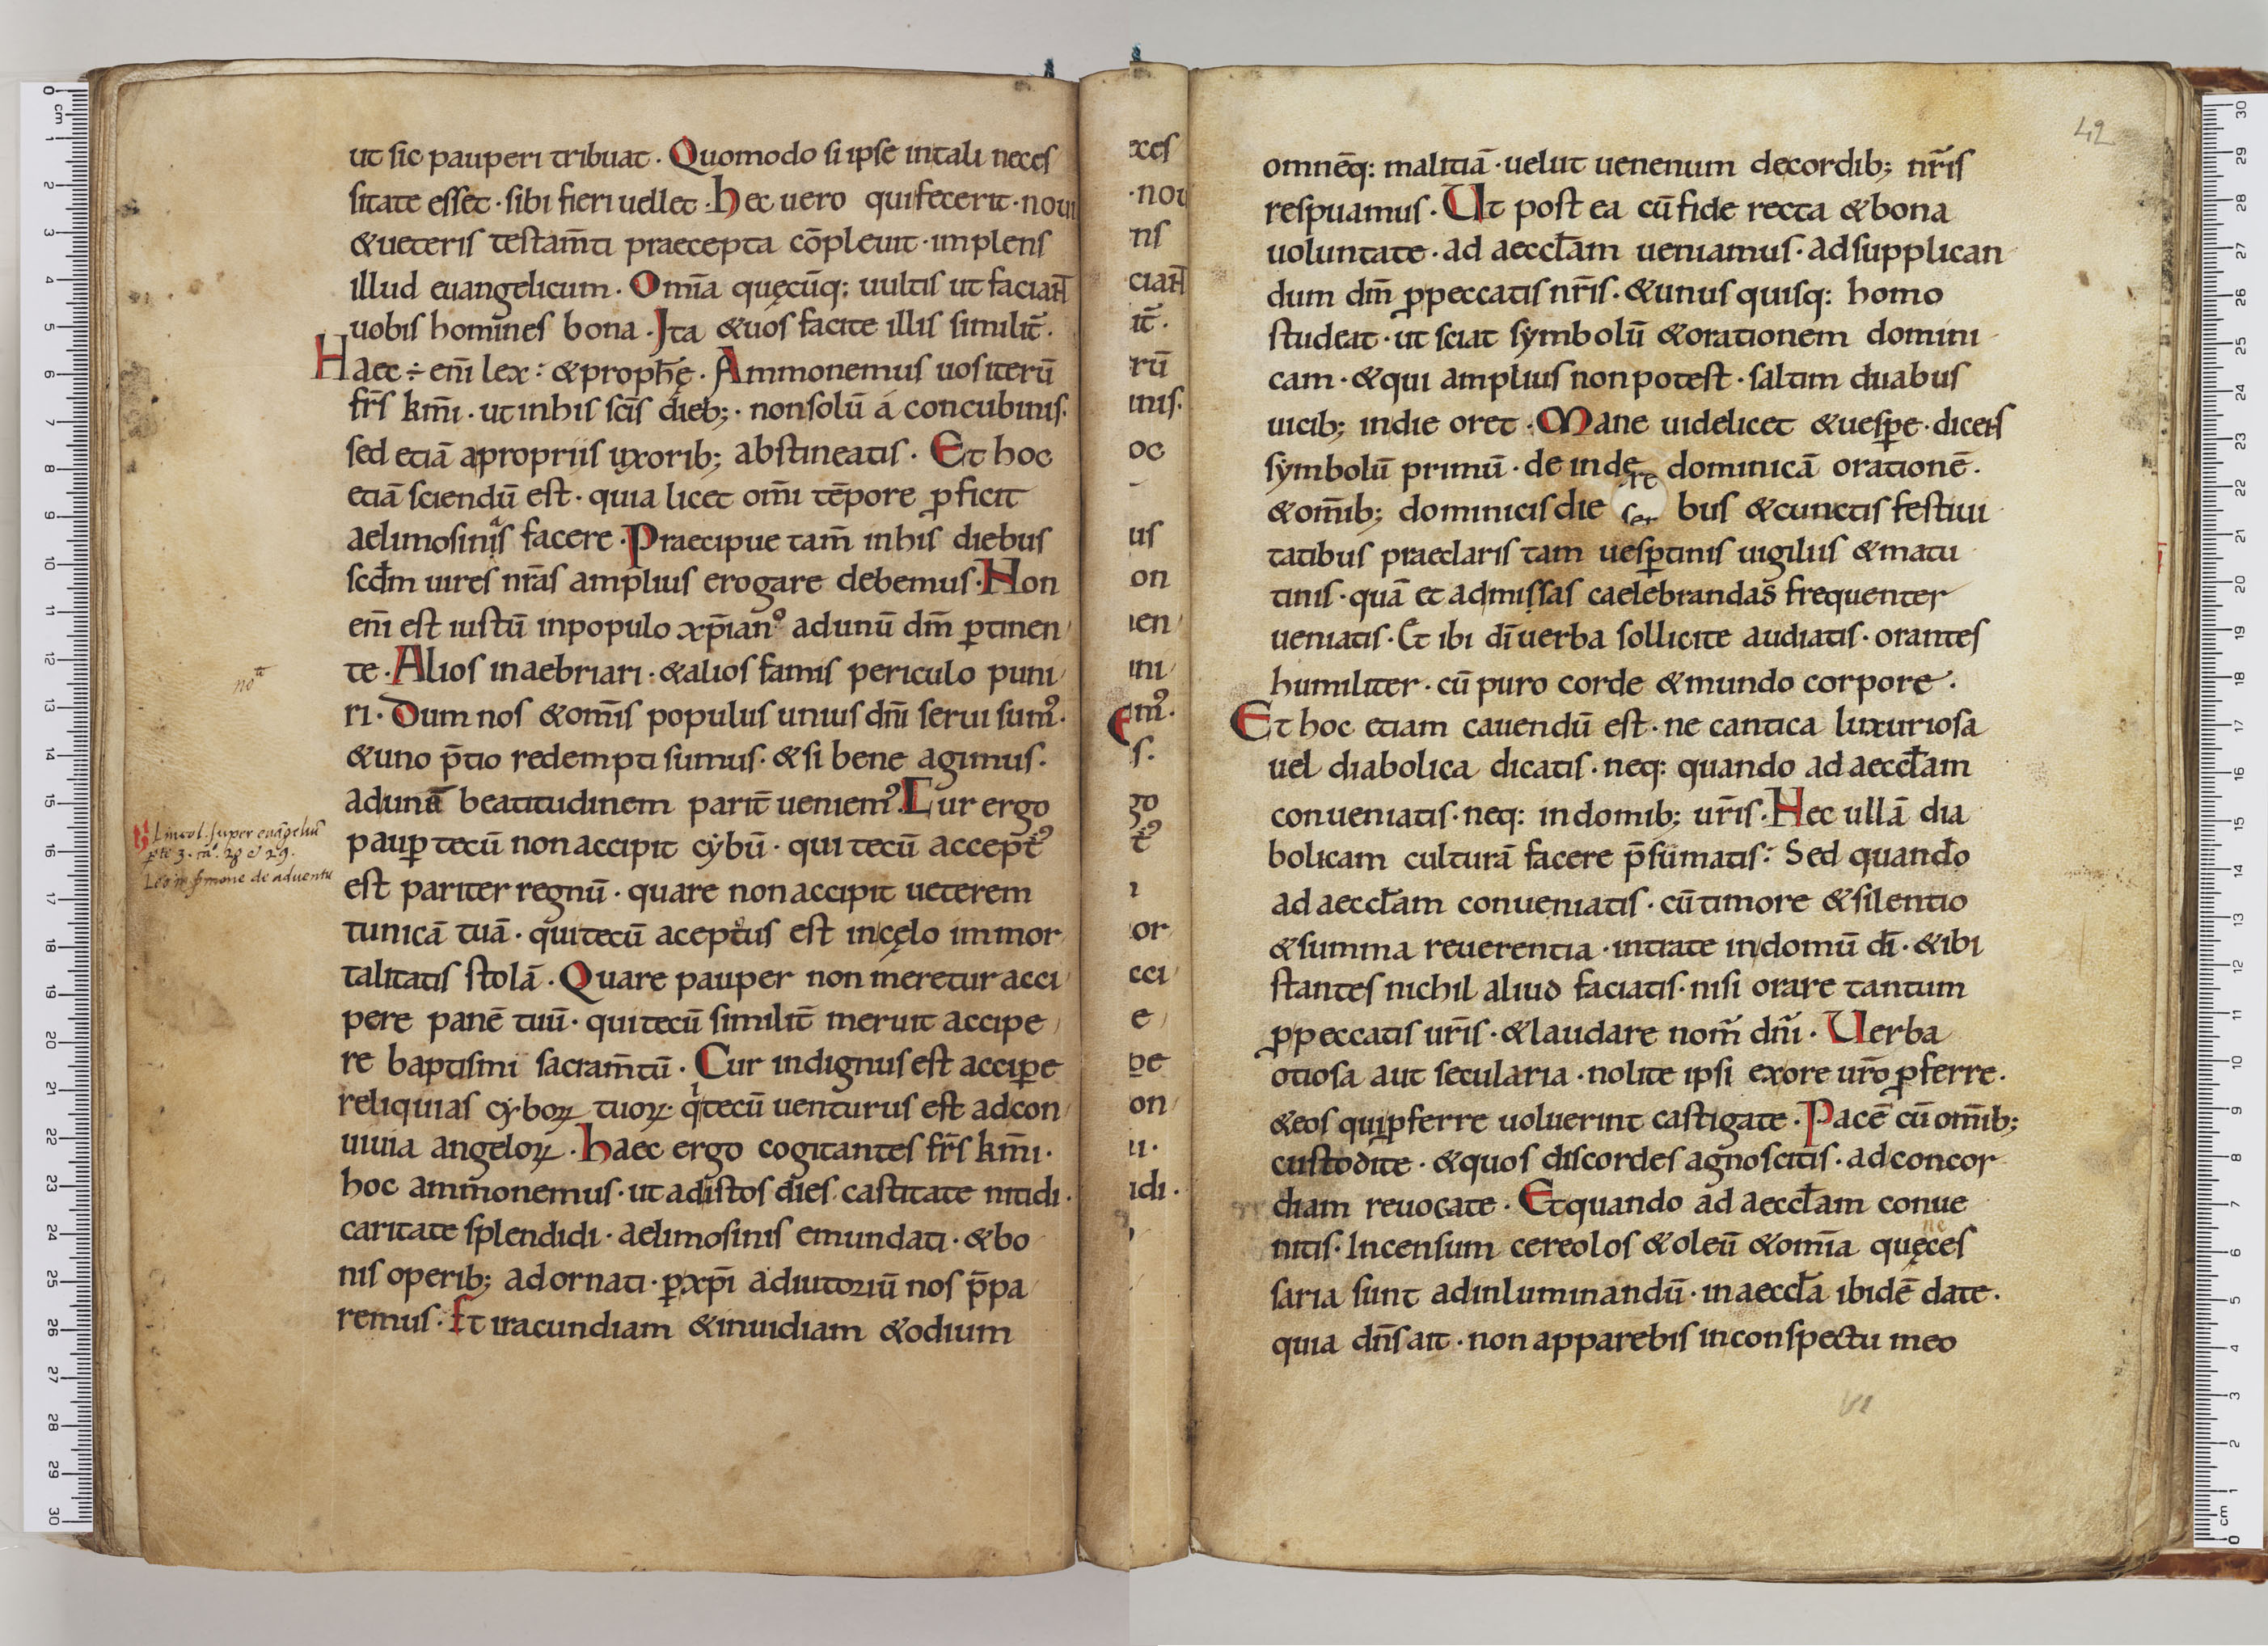 ut sic pauperi tribuat · Quomodo si ipse intali neces
sitate esset · sibi fieri uellet · hec uero qui fecerit · noui
&ueteris testam̄ti praecepta cōpleuit · implens
illud euangelicum · Om̄ia quęcūq: uultis ut faciant
uobis homines bona · Ita &uos facite illis similit̄ ·
Haec ÷ eni̅ lex : &proph̄ę · Ammonemus uos iterū
fr̄s km̄i · ut inhis sc̄is dieb; · nonsolū á concubinis ·
sed etiā apropriis uxorib; abstineatis · Et hoc
etiā sciendū est · quia licet om̄i tēpore ꝓficit
aelimosinis facere · Praecipue tam̄ inhis diebus
scd̄m uires nr̄as amplius erogare debemus · Non
eni̅ est iustū inpopulo xp̄ianꝰ adunū dm̄ ꝑtinen
te · Alios inaebriari · &alios famis periculo puni
ri · Dum nos &om̄is populus unius dn̄i serui sumꝰ ·
&uno p̄tio redempti sumus · &si bene agimus ·
adunā beatitudinem parit̄ ueniemꝰ · Cur ergo
pauꝑ tecū nonaccipit cẏbū · qui tecū accept̄ꝰ
est pariter regnū · quare nonaccipit ueterem
tunicā tuā · quitecū acepturus est incęlo immor
talitatis stolā · Quare pauper non meretur acci
pere panē tuū · quitecū similit̄ meruit accipe
re baptismi sacram̄tū · Cur indignus est acciꝑe
reliquias cẏboꝝ tuoꝝ · qͥtecū uenturus est adcon
uiuia angeloꝝ · Haec ergo cogitantes fr̄s km̄i ·
hoc ammonemus · ut adistos dies castitate nitidi ·
caritate splendidi · aelimosinis emundati · &bo
nis operib; adornati · ꝑxp̄i adiutoriū nos p̄pa
remus · Et iracundiam &inuidiam &odium
noᵗᵃ
Lincol. super euāgeliū
Leo in s̄mone de aduentu
42
omnēq: malitiā · uelut uenenum decordib; nr̄is
respuamus · Ut post ea cū fide recta &bona
uoluntate · ad aeccl̄am ueniamus · adsupplican
dum dm̄ ꝓpeccatis nr̄is · &unus quisq: homo
studeat · ut sciat symbolū &orationem domini
cam · &qui amplius nonpotest · saltim duabus
uicib; indie oret · Mane uidelicet &uesꝑe · dicens
symbolū primū · de inde dominicā orationē ·
&om̄ib; dominicis die bus &cunctis festiui
tatibus praeclaris tam uesꝑtinis uigiliis &matu
tinis · quā et admissas caelebrandas frequenter
ueniatis · Et ibi dī uerba sollicite audiatis · orantes
humiliter · cū puro corde &mundo corpore ·
Et hoc etiam cauendū est · ne cantica luxuriosa
uel diabolica dicatis · neq: quando ad aeccl̄am
conueniatis · neq: indomib; ur̄is · Nec ullā dia
bolicam culturā facere p̄sumatis : Sed quando
ad aeccl̄am conueniatis · cū timore &silentio
&summa reuerentia · intrate indomū dī · &ibi
stantes nichil aliud faciatis · nisi orare tantum
ꝓpeccatis ur̄is · &laudare nom̄ dn̄i · Uerba
otiosa aut secularia · nolite ipsi exore ur̄o ꝓferre ·
&eos quiꝓferre uoluerint castigate · Pacē cū om̄ib;
custodite · &quos discordes agnoscitis · adconcor
diam reuocate · Et quando ad aeccl̄am conue
nitis · Incensum cereolos &oleū &om̄ia quęneces
saria sunt adinluminandū · inaeccl̄a ibidē date ·
quia dn̄s ait · non apparebis inconspectu meo